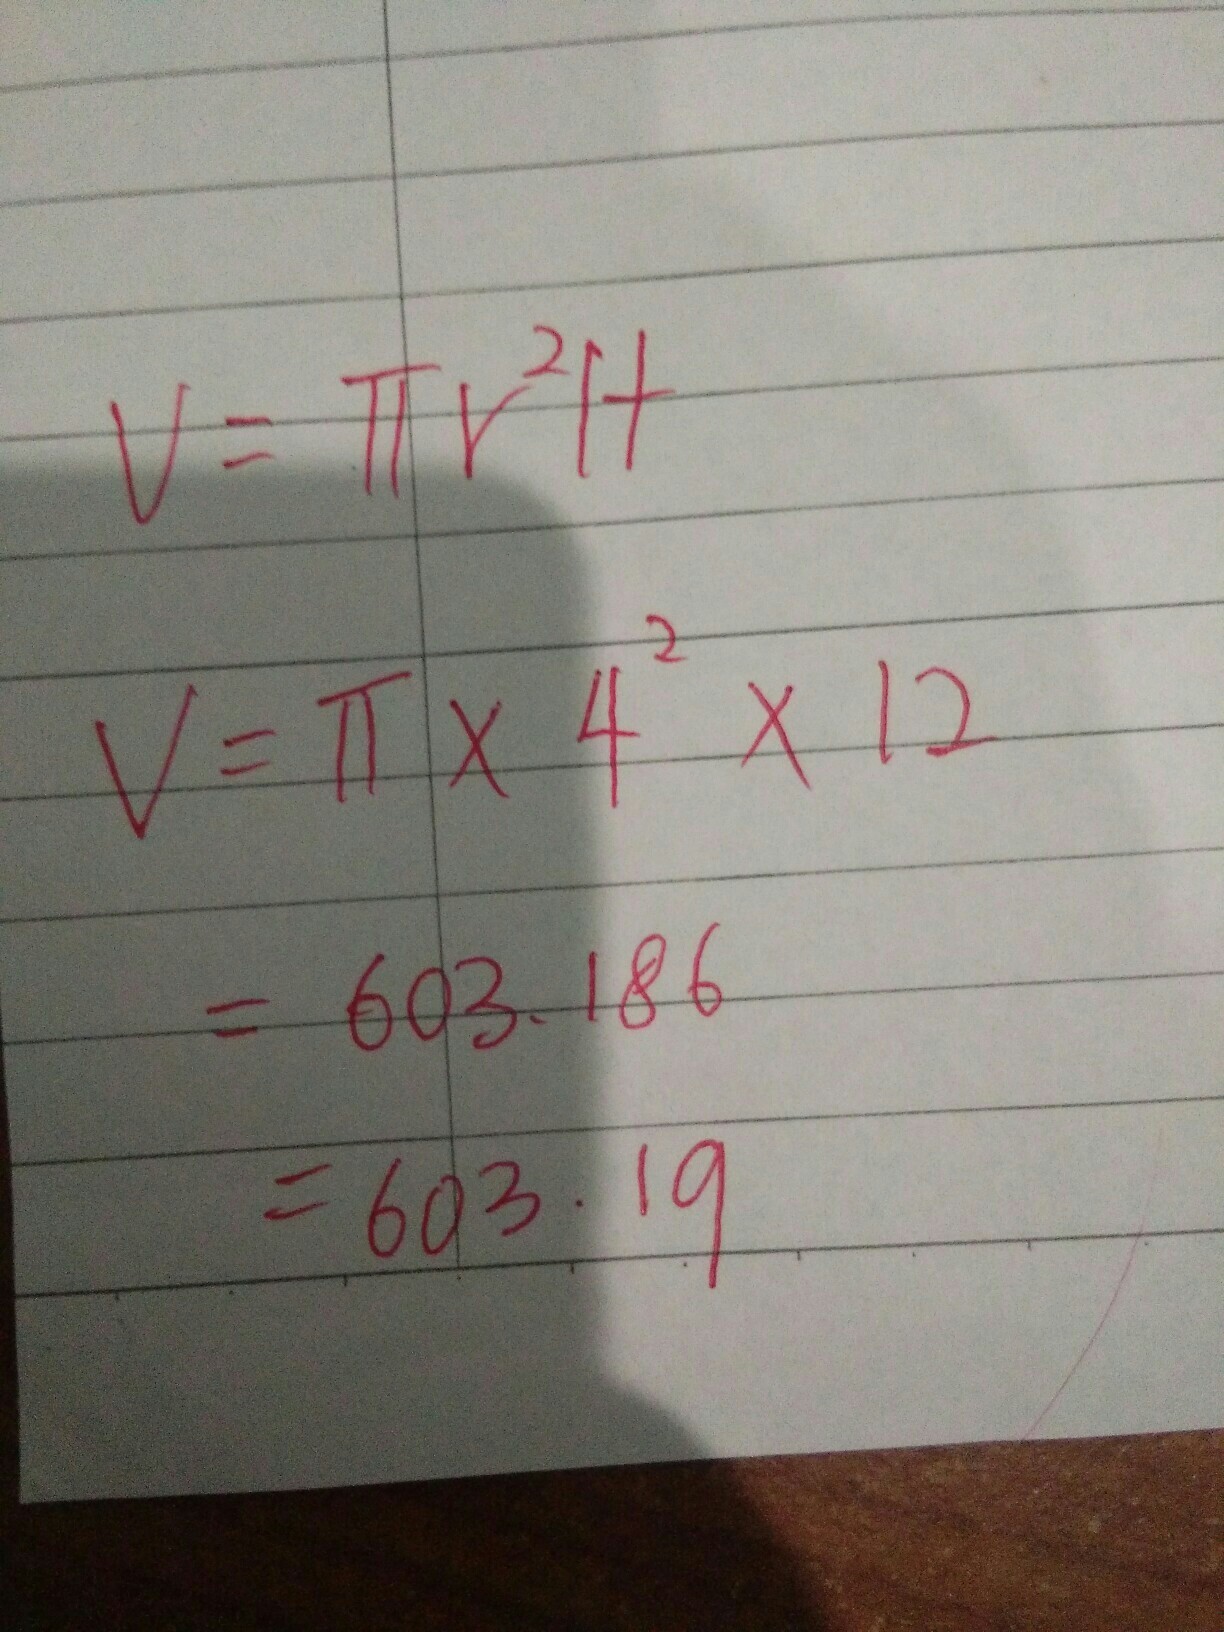 V = πr²H
V = π × 4² × 12
= 603.186
= 603.19